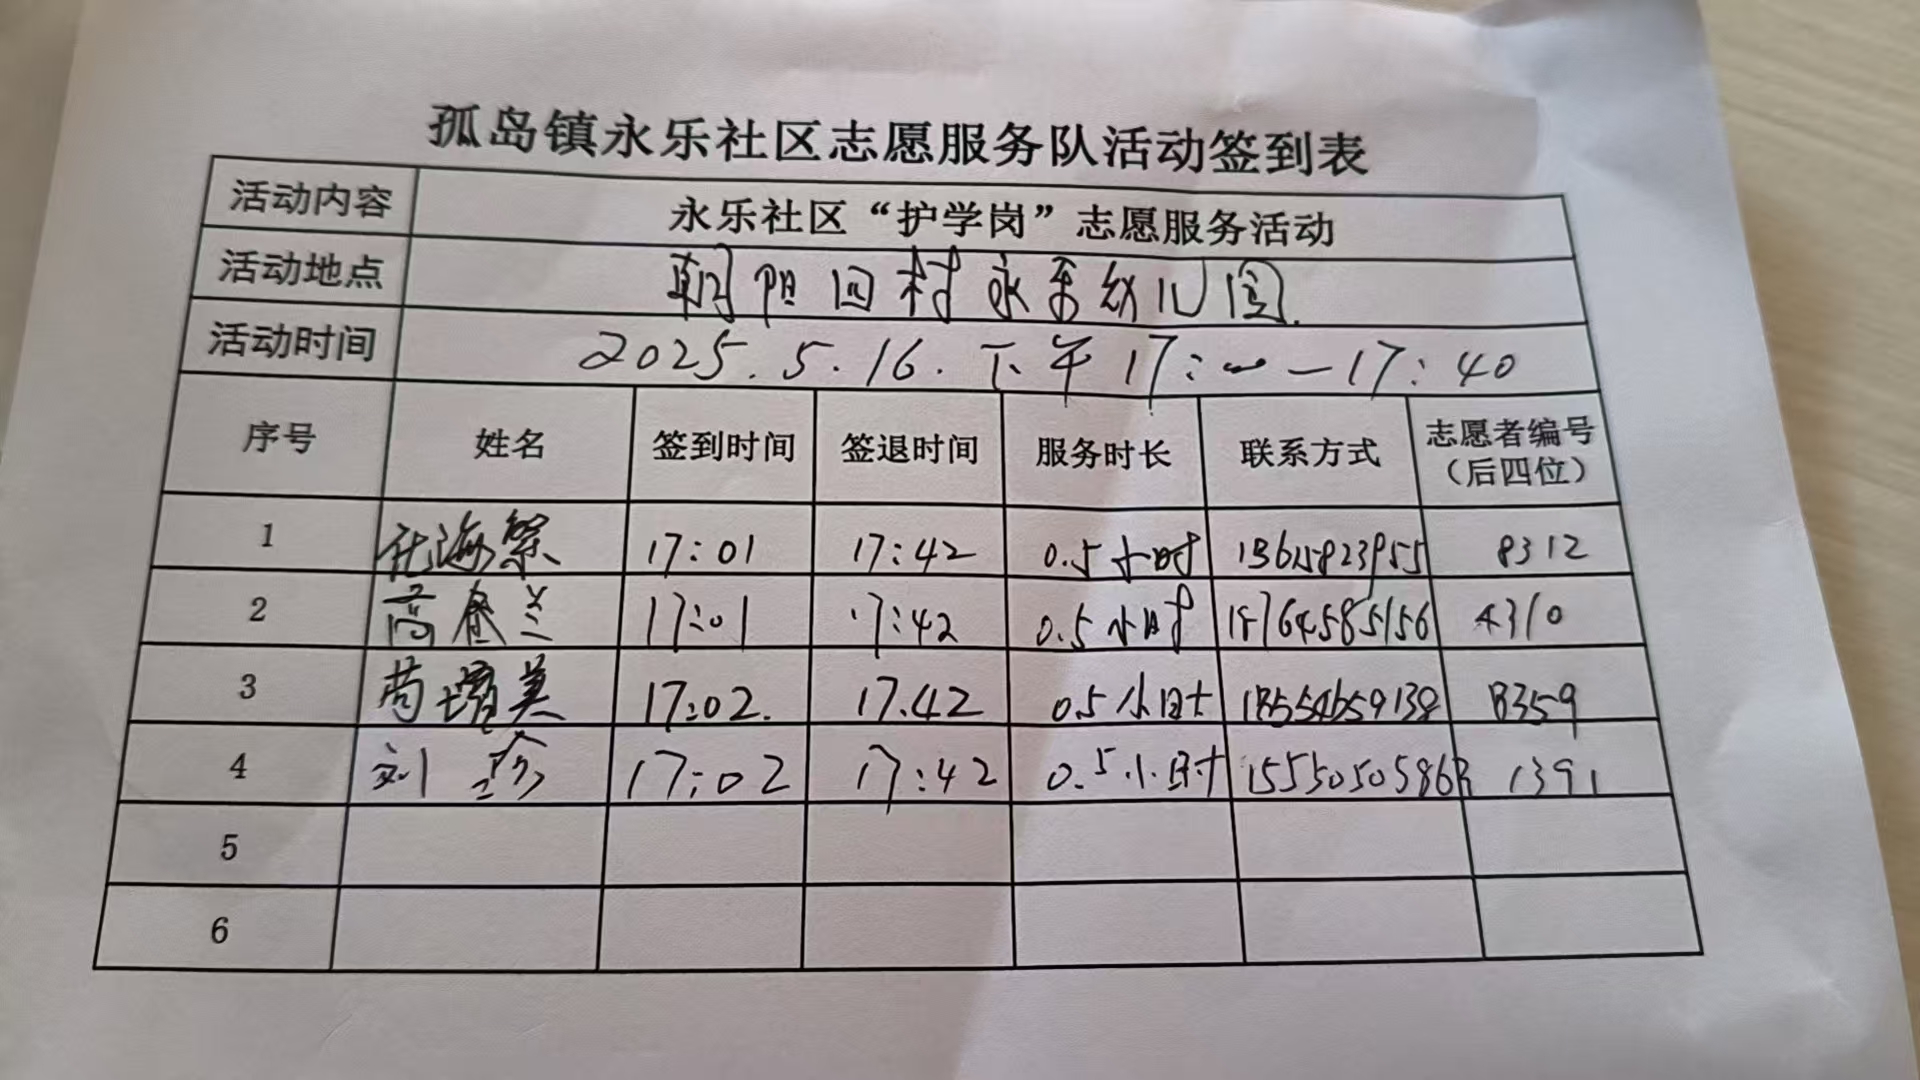 孤岛镇永乐社区志愿服务队活动签到表
活动内容 永乐社区“护学岗”志愿服务活动
活动地点 朝阳四村永乐幼儿园.
活动时间 2025.5.16.下午17:00—17:40
序号 姓名 签到时间 签退时间 服务时长 联系方式 志愿者编号（后四位）
1 17:01 17:42 0.5小时 8312
2 高春兰 17:01 17:42 0.5小时 4310
3 17:02. 17.42 0.5小时 8359
4 刘珍 17:02 17:42 0.5小时 15550505863 1391
5
6